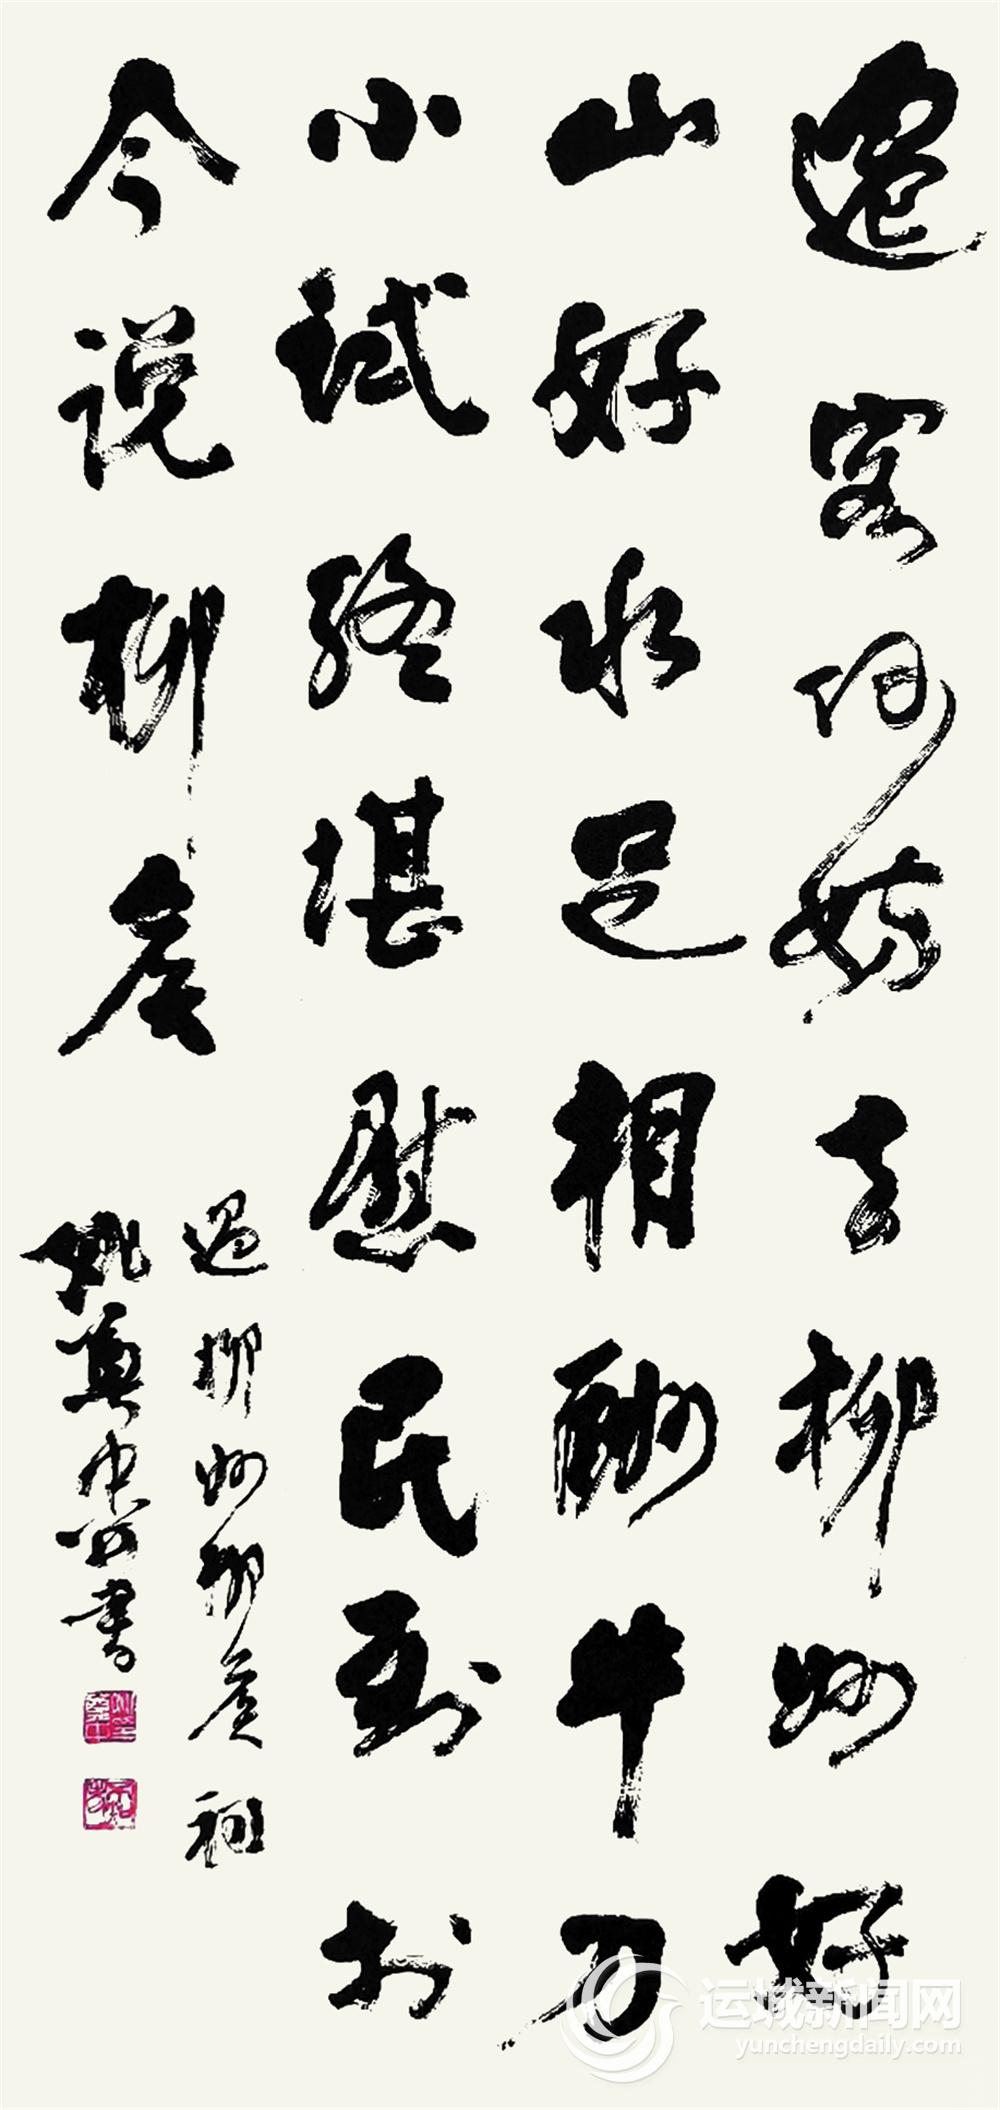 遷客何妨去柳州好
山好水足相酬牛刀
小試终堪慰民到扵
今说柳侯
過柳州柳侯祠
姚奠中書
运城新闻网
yunchengdaily.com